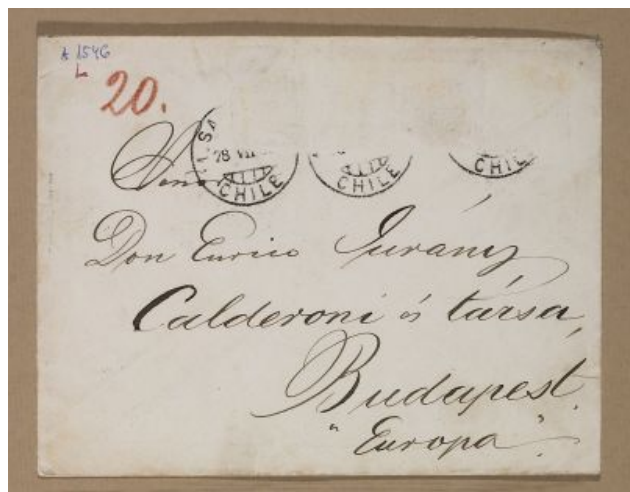 A 1546
L
20.
28 VII
CHILE
CHILE
CHILE
Don Enrico Jurány
Calderoni és társa,
Budapest.
"Europa".